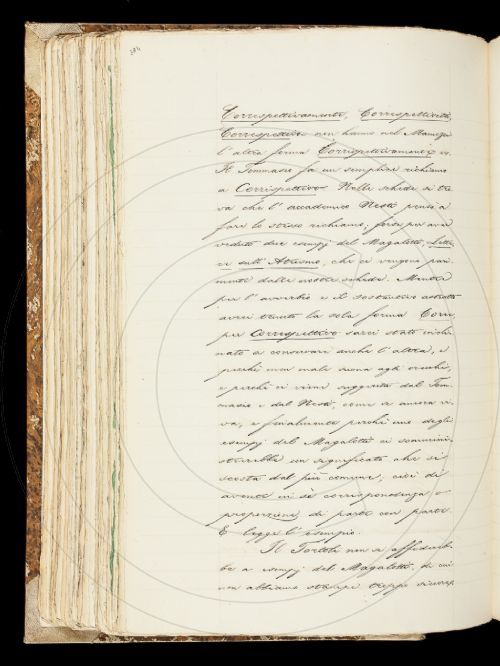 384
Correspettivamente, Correspettività,
Correspettivo non hanno nel Manuzzi
l'altra forma Corrispettivamente ec.
Il Tommaseo fa un semplice richiamo
a Corrispettivo. Nelle schede si tro
va che l'accademico Nesti pensò a
fare lo stesso richiamo; forse per aver
veduto due esempj del Magalotti, Lette
re sull'Ateismo, che ci vengono pari
menti dalle nostre schede. Mentre
per l'avverbio e il sostantivo astratto
avrei tenuto la sola forma Corre,
per Correspettivo sarei stato incli
nato a conservare anche l'altra, e
perché non male suona agli orecchi,
e perché ci viene suggerita dal Tom
maseo e dal Nesti, come si ancora
e finalmente perché uno degli
esempj del Magalotti ci sommini
strerebbe un significato che si
scosta dal più comune; cioè di
avente in sè corrispondenza o
proporzione di parte con parte.
E leggi l'esempio.
Il Tortoli non si affidereb
be a esempj del Magalotti, di cui
non abbiamo stampe troppo sicure,